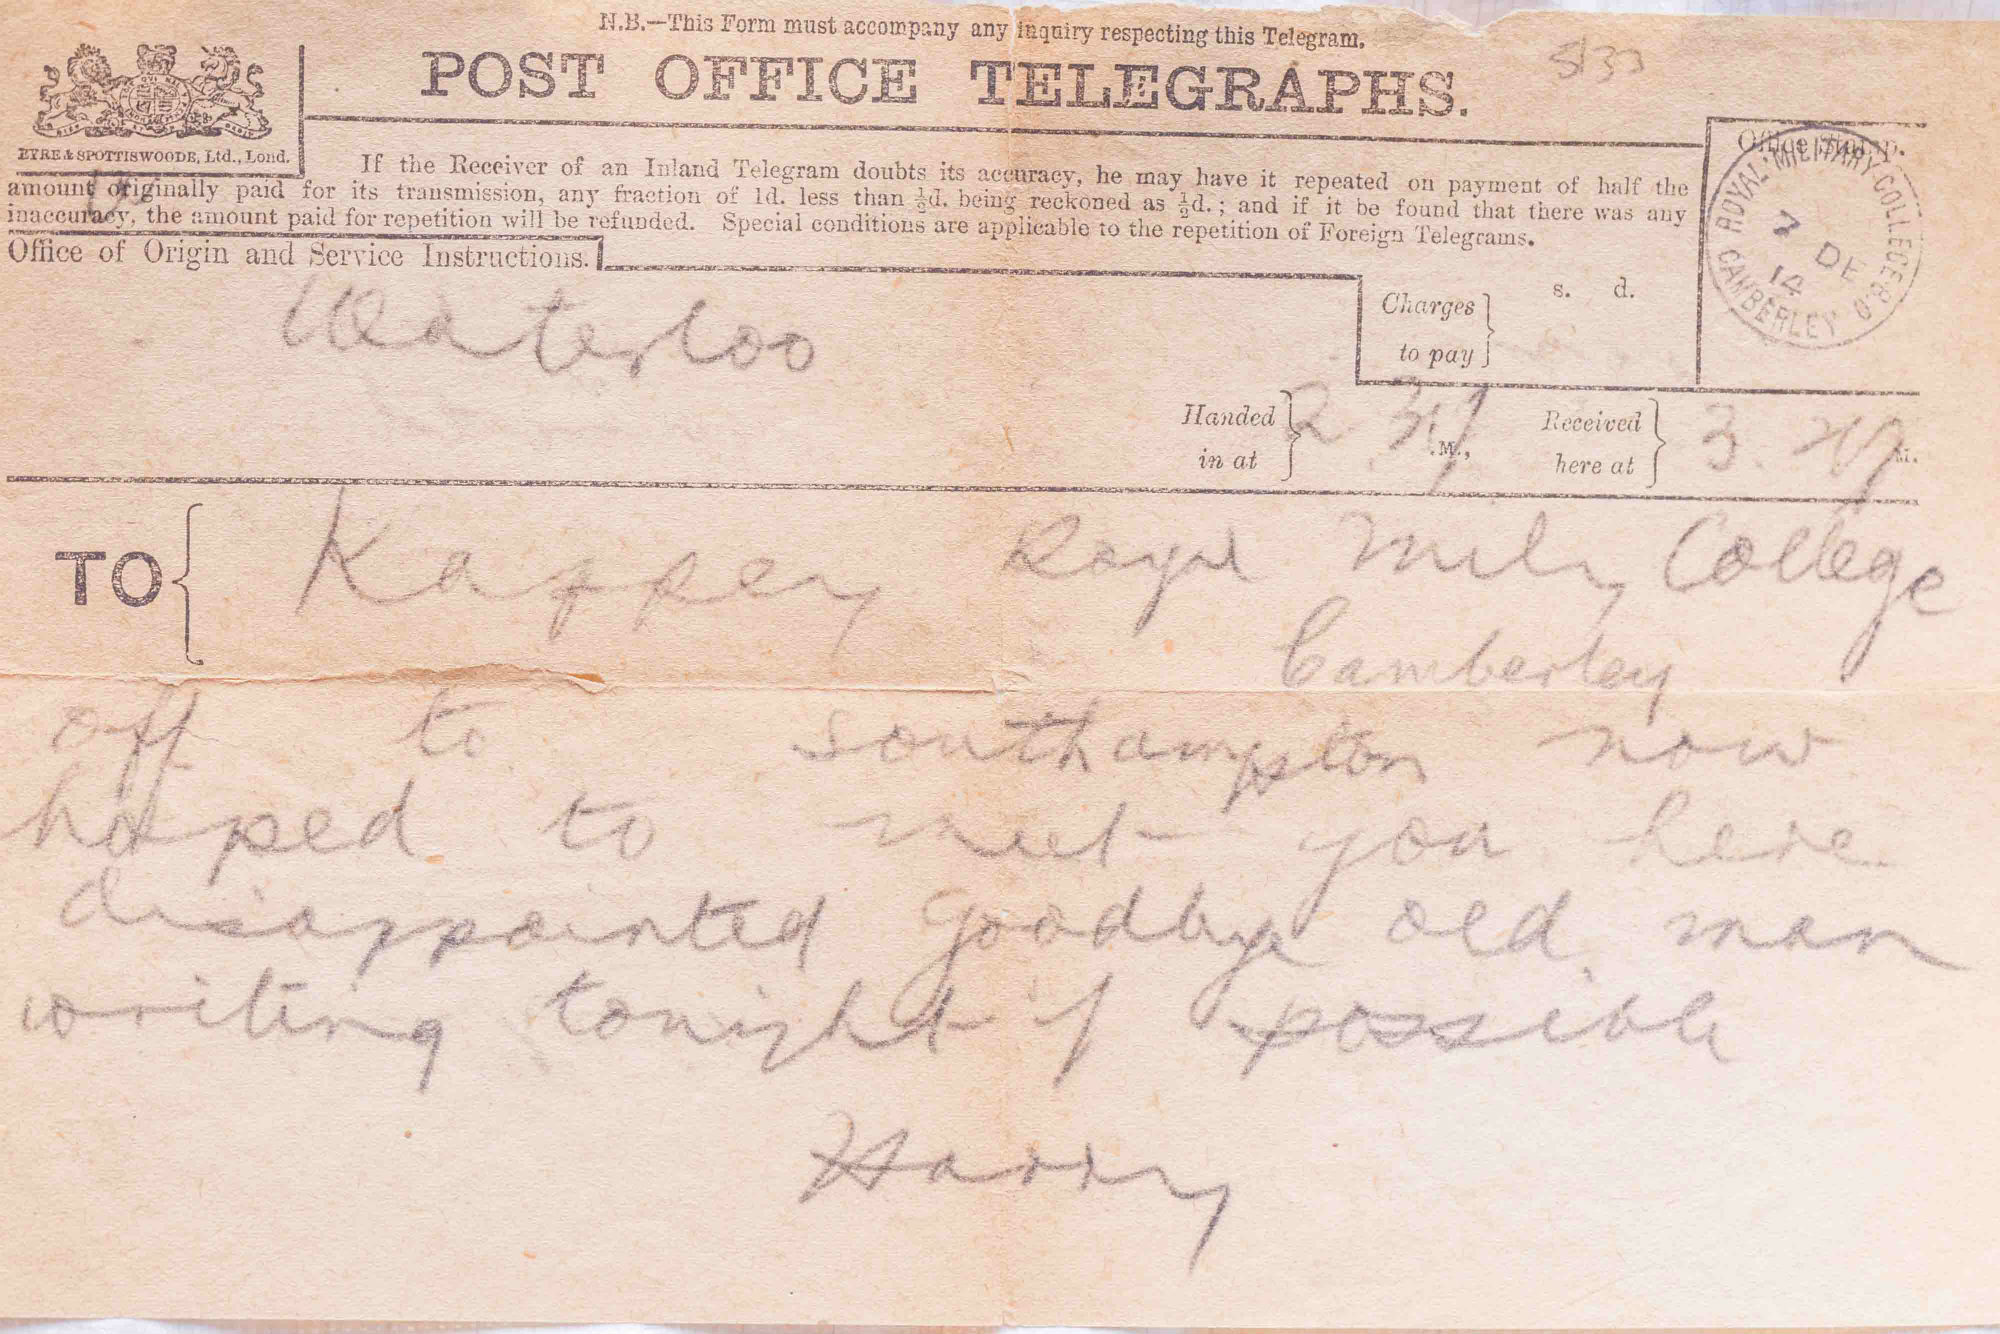 N.B.—This Form must accompany any inquiry respecting this Telegram.
5/33
POST OFFICE TELEGRAPHS.
EYRE & SPOTTISWOODE, Ltd., Lond.
If the Receiver of an Inland Telegram doubts its accuracy, he may have it repeated on payment of half the
amount originally paid for its transmission, any fraction of 1d. less than ½d. being reckoned as ½d.; and if it be found that there was any
inaccuracy, the amount paid for repetition will be refunded. Special conditions are applicable to the repetition of Foreign Telegrams.
Office Stamp.
ROYAL MILITARY COLLEGE B.O.
CAMBERLEY
7 DE
14
Office of Origin and Service Instructions.
Waterloo
Charges
to pay
s. d.
Handed
in at
2
.M.,
Received
here at
3.
M.
TO
Kappey Royal Mily College
Camberley
off to southampton now
hoped to meet you here
disappointed goodbye old man
writing tonight if possible
Harry